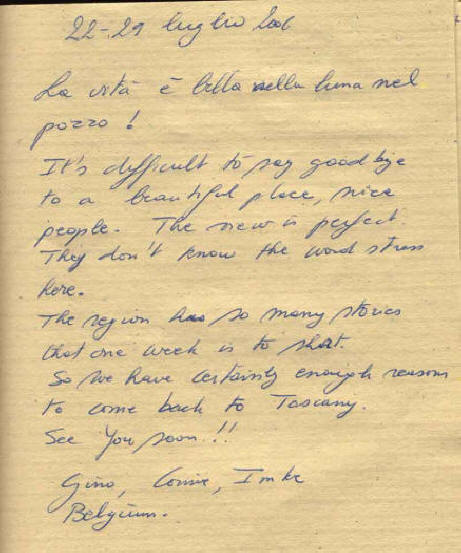 22-29 luglio 2006
La vità è bella nella luna nel
pozzo!
It's difficult to say good bye
to a beautiful place, nice
people. The view is perfect
They don't know the word stress
here.
The region has so many stories
that one week is to short.
So we have certainly enough reasons
to come back to Toscany.
See you soon!!
Gino, Connie, Imke
Belgium.